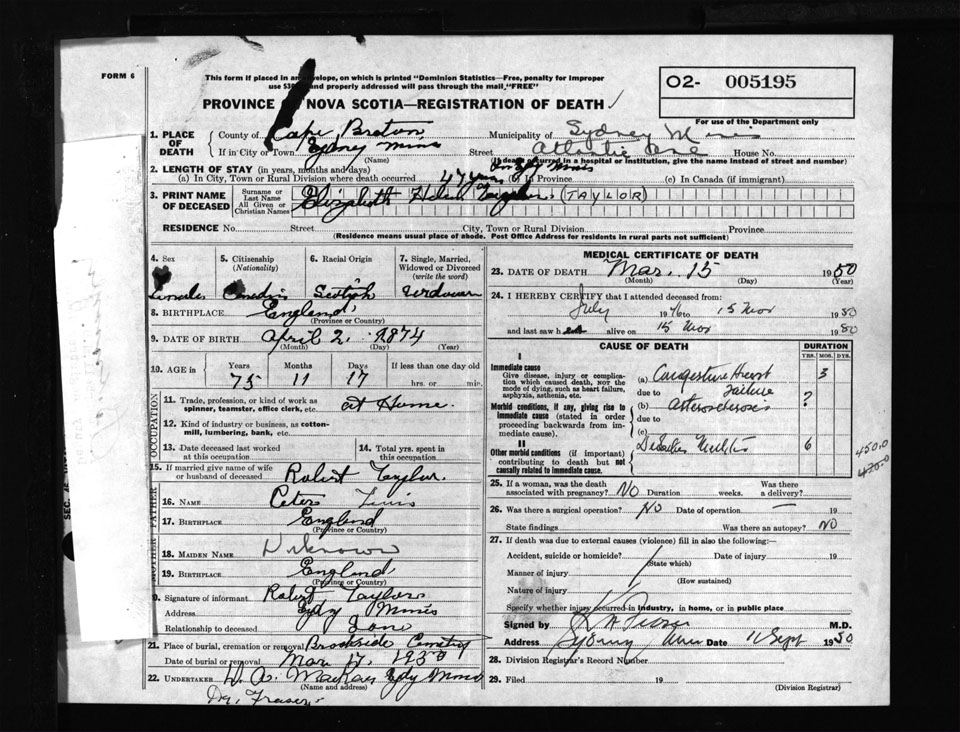 FORM 6
This form if placed in an envelope, on which is printed "Dominion Statistics—Free, penalty for improper
use $300 and properly addressed will pass through the mail, "FREE"
O2- 005195
PROVINCE NOVA SCOTIA—REGISTRATION OF DEATH
For use of the Department only
1. PLACE OF DEATH
County of Cape Breton Municipality of Sydney Mines
If in City or Town Sydney Mines (Name) Street Atlantic House No.
(If death occurred in a hospital or institution, give the name instead of street and number)
2. LENGTH OF STAY (in years, months and days)
(a) In City, Town or Rural Division where death occurred 47 years (b) In Province (c) In Canada (if immigrant)
3. PRINT NAME OF DECEASED
Surname or Last Name
All Given or Christian Names
Elizabeth Helen Taylor (TAYLOR)
RESIDENCE No. Street City, Town or Rural Division Province
(Residence means usual place of abode. Post Office Address for residents in rural parts not sufficient)
4. Sex Female
5. Citizenship (Nationality)
6. Racial Origin
7. Single, Married, Widowed or Divorced (write the word)
8. BIRTHPLACE England
(Province or Country)
9. DATE OF BIRTH April 2, 1874
(Month) (Day) (Year)
10. AGE in Years 75 Months 11 Days 17 If less than one day old
hrs. or min.
OCCUPATION
11. Trade, profession, or kind of work as spinner, teamster, office clerk, etc. at Home.
12. Kind of industry or business, as cotton-mill, lumbering, bank, etc.
13. Date deceased last worked at this occupation
14. Total yrs. spent in this occupation
15. If married give name of wife or husband of deceased Robert Taylor
FATHER
16. NAME Peter
17. BIRTHPLACE England
(Province or Country)
18. MAIDEN NAME Unknown
19. BIRTHPLACE England
(Province or Country)
Signature of informant Robert Taylor
Address Sydy Mines
Relationship to deceased
21. Place of burial, cremation or removal Brookside Cemetery
Date of burial or removal Mar 17, 1950
22. UNDERTAKER Sydy Mines
(Name and address)
Dr. Fraser
MEDICAL CERTIFICATE OF DEATH
23. DATE OF DEATH Mar. 15 1950
(Month) (Day) (Year)
24. I HEREBY CERTIFY that I attended deceased from:
July 1946 to 15 Mar 1950
and last saw her alive on 15 Mar 1950
CAUSE OF DEATH
DURATION
YRS. MOS. DYS.
I
Immediate cause
Give disease, injury or complication which caused death, NOT the mode of dying, such as heart failure, asphyxia, asthenia, etc.
(a) Congestive Heart Failure 3
due to
Morbid conditions, if any, giving rise to immediate cause (stated in order proceeding backwards from immediate cause).
(b) Atherosclerosis ?
due to
(c)
II
Other morbid conditions (if important) contributing to death but not causally related to immediate cause.
6
450.0
25. If a woman, was the death associated with pregnancy? NO Duration weeks. Was there a delivery?
26. Was there a surgical operation? NO Date of operation — 19
State findings Was there an autopsy? NO
27. If death was due to external causes (violence) fill in also the following:—
Accident, suicide or homicide? Date of injury 19
(State which)
Manner of injury
(How sustained)
Nature of injury
Specify whether injury occurred in industry, in home, or in public place
Signed by M.D.
Address Sydney Mines Date 11 Sept 1950
28. Division Registrar's Record Number
29. Filed 19
(Division Registrar)